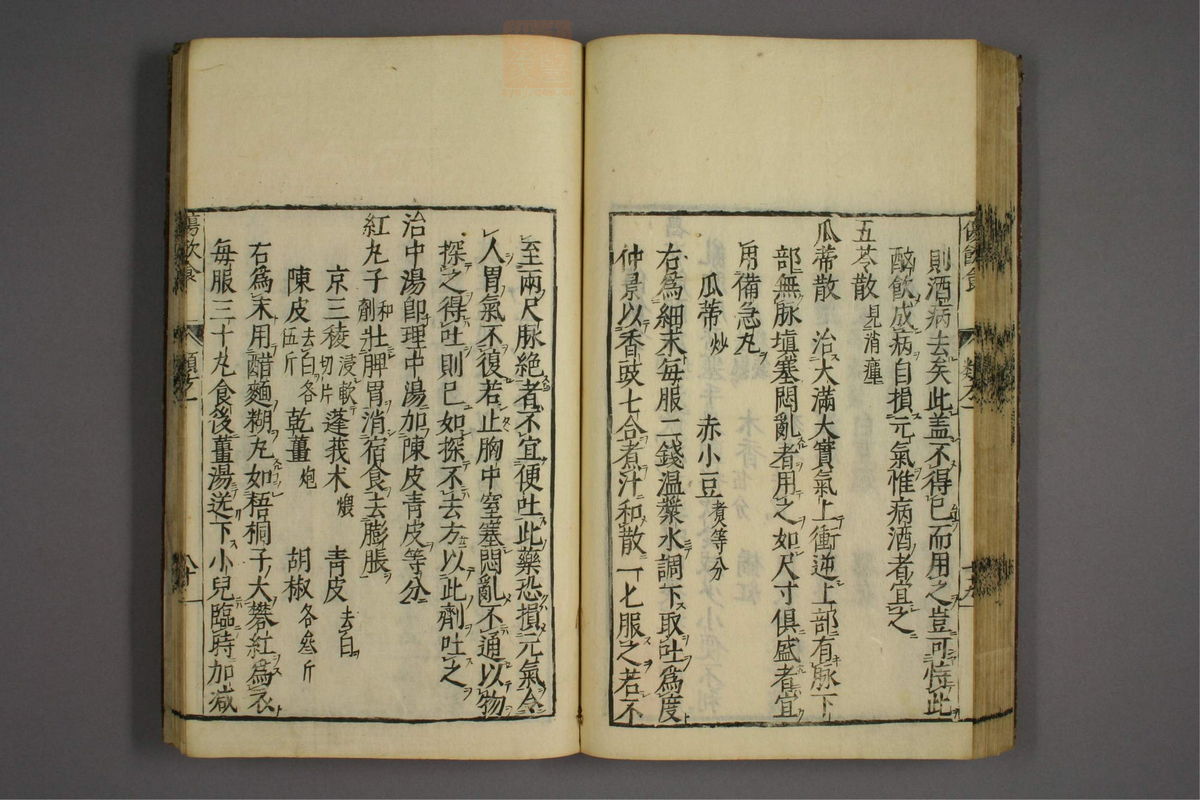 則酒病去矣此盖不得已而用之豈可恃此
酣飲成病自損元氣惟病酒者宜之
五苓散 見消癉
瓜蒂散 治大滿大實氣上衝逆上部有脉下
部無脉塡塞悶亂者用之如尺寸俱盛者宜
用備急丸
瓜蒂炒 赤小豆煑等分
右爲細末每服二錢温漿水調下取吐爲度
仲景以香豉七合煮汁和散一匕服之若不
至兩尺脉絶者不宜便吐此藥恐損元氣令
人胃氣不復若止胸中窒塞悶亂不通以物
探之得吐則已如探不去方以此劑吐之
治中湯卽理中湯加陳皮青皮等分
紅丸子 和劑 壯脾胃消宿食去膨脹
京三稜浸軟切片 蓬莪朮煨 青皮去白
陳皮去白各伍斤 乾薑炮 胡椒各叄斤
右爲末用醋麵糊丸如梧桐子大礬紅爲衣
每服三十丸食後薑湯送下小兒臨時加減
傷飲食